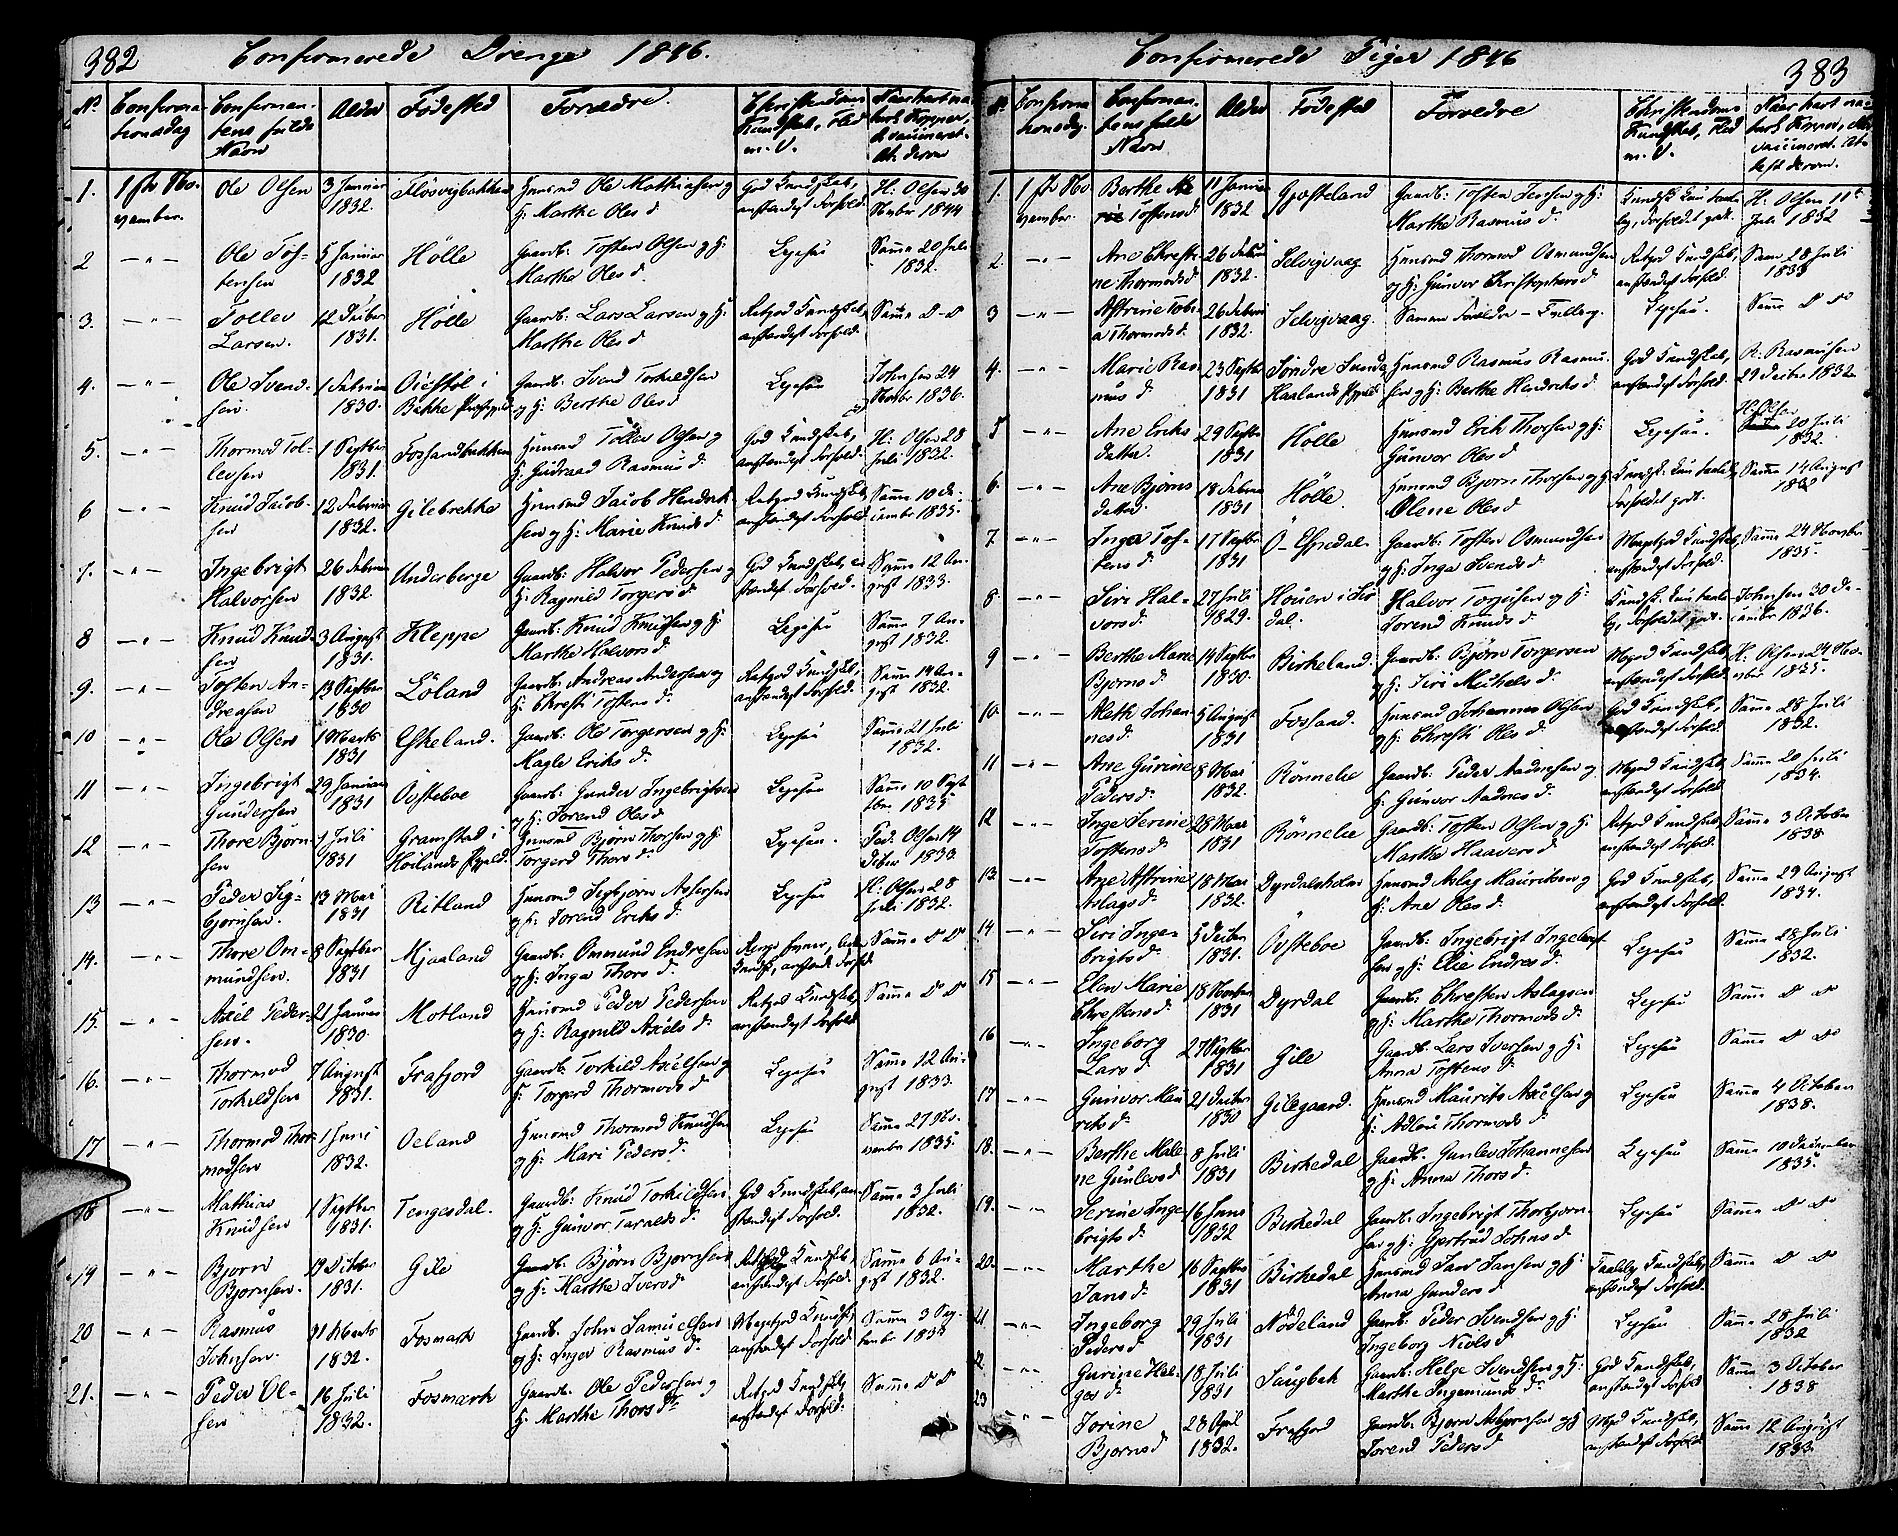 382
Confirmerede Drenge 1846.
No Confirmationsdag Confirmantens fulde Navn Alder Födested Forældre. Christendoms Kundskab, Flid m.V.
1. 1ste November. Ole Olsen 3 Januar 1832. Husmd Ole Mathiasen g H: Marthe Oles d. God Kundskab, anstændigt Forhold. H: Olsen 30 Novbr 1844
2 —"— Ole Tostensen 5 Januar 1832 Hölle Gaardb: Tosten Olsen g H: Marthe Oles d. Ligesaa Samme 20 Juli 1832.
3. —"— Tollev Larsen. 12 Decber 1831. Hölle Gaardb: Lars Larsen g H: Marthe Oles d Retgod Kundskab, anstændigt Forhold. Samme D D
4. —"— Ole Svendsen. 1 Februar 1830. i Bakke Gaardb: Svend Torkildsen g H: Berthe Oles d Ligesaa Johnsen 24 Novbr 1836.
5. —"— Thormod Tollevsen 1 Septbr 1831. Fossandbakken Husmd Tollev Olsen g H: Gudraad Rasmus d. God Kundskab, anstændigt Forhold. H: Olsen 28 Juli 1832.
6 —"— Knud Jacobsen 12 Februar 1832. Gilebrekke Husmd Jacob Hendriksen g H: Marie Knuds d. Retgod Kundskab, anstændigt Forhold Samme 10 December 1835.
7. —"— Ingebrigt Halvorsen 26 Februar 1832. Underberge Gaardb: Halvor Pedersen g H: Ragnild Torgers d. God Kundskab, anstændigt Forhold. Samme 12 August 1833.
8 —"— Knud Knudsen 3 August 1831. Kleppe Gaardb: Knud Knudsen g H: Marthe Halvors d. Ligesaa Samme 7 August 1832.
9. —"— Tosten Andreasen 13 Septber 1830 Löland Gaardb: Andreas Andersen g H: Christi Tostens d. Retgod Kundskab, anstændigt Forhold. Samme 14 August 1832.
10 —"— Ole Olsen 1 Marts 1831 Eskeland. Gaardb: Ole Torgersen g H: Magle Eriks d. Ligesaa Samme 21 Juli 1832.
11 —"— Ingebrigt Gundersen 29 Januar 1831 Ovsteboe Gaardb: Gunder Ingebrigtsen g H: Jorend Oles d Ligesaa Samme 10 Septbr 1835
12 —"— Thore Björnsen 7 Juli 1831 Gramstad i Höilands Husmd Björn Thorsen g H: Torgerd Thors d. Ligesaa. Ped. Olsen 14 Decbr 1833.
13 —"— Peder Sigbjörnsen. 13 Mai 1831 Ritland Husmd Sigbjörn Assersen g H: Jorend Eriks d. Ligesaa H: Olsen 28 Juli 1832.
14. —"— Thore Ommundsen. 8 Septber 1831 Mjaaland Gaardb: Ommund Endresen g H: Inga Thors d. Samme D D
15. —"— Axel Pedersen. 21 Januar 1830. Motland Husmd Peder Pedersen g H: Ragnild Axels d. Retgod Kundskab, anstændigt Forhold Samme D D
16. —"— Thormod Torkildsen 7 August 1831. Frafjord Gaardb: Torkild Axelsen g H: Torgerd Thormods d. Ligesaa Samme 12 August 1833.
17 —"— Thormod Thormodsen 1 Juni 1832. Oeland Husmd Thormod Knudsen g H: Mari Peders d. Ligesaa Samme 27 November 1835.
18 —"— Mathias Knudsen 1 Septber 1831. Tengesdal. Gaardb: Knud Torkildsen g H: Gunvor d. God Kundskab, anstændigt Forhold. Samme 3 Juli 1832.
19 —"— Bjorn Bjornsen. 19 Octber 1831. Gile Gaardb: Björn Bjornsen g H: Marthe Ivers d Kundskab, anstændigt Forhold. Samme 6 August 1832.
20 —"— Rasmus Johnsen. 31 Marts 1832. Fosmark Gaardb: John Samuelsen g H: Inger Rasmus d. Megetgod Kundsk, anstændigt Forhold. Samme 3 September
21. —"— Peder Olsen 16 Juli 1832. Fosmark Gaardb: Ole Pedersen g H: Marthe Thors d. Retgod Kundskab, anstændigt Forhold. Samme D D
383
Confirmerede Piger 1846
No Confirmationsdag. Confirmantens fulde Navn Alder Födested Forældre Christendoms Kundskab, Flid m.V.
1. 1ste November. Berthe Marie Tostens d. 11 Januar 1832 Gjesteland Gaardb: Tosten Jensen g H: Marthe Rasmus d. H: Olsen 11te Juli 1832
2. —"— Ane Christine Thormods d. 26 Februar 1832. Selvigvaag Husmd Thormod Osmundsen g H: Gunvor Christophers d Retgod Kundskab, anstændigt Forhold. Samme 28 Juli
3 —"— Astrine Tobia Thormods d. 26 Februar 1832. Selvigvaag. Samme Forældre – Tvilling. Ligesaa. Samme D D
4. —"— Marie Rasmus d. 23 Septbr 1831 Söndre Sunde Haalands Husmd Rasmus Rasmussen g H: Berthe Hendriks d. God Kundskab, anstændigt Forhold. R: Rasmussen 29 Decber 1832
5 —"— Ane Eriks datter. 29 Septbr 1831 Hölle Husmd Erik Thorsen g H: Gunvor Oles d. Ligesaa. H: Olsen 20 Juli 1832.
6. —"— Ane Bjorns datter 18 Februar 1831 Hölle Husmd Bjorn Thorsen g H: Olene Oles d. Forholdet godt. Samme 14 August
7. —"— Inga Tostens d. 17 Septbr 1831 Ö-Espedal. Gaardb: Tosten Osmundsen g H: Inga Svends d. Megetgod Kundskab, anstændigt Forhold. Samme 24 November 1835.
8 —"— Siri Halvors d. 27 Juli 1829. Halvor Torgersen g H: Jorend Knuds d. Forholdet godt. Johnsen 30 December 1836.
9 —"— Berthe Marie Bjorns d. 14 Septbr 1830. Birkeland. Gaardb: Björn Torgersen g H: Siri Michels d. Kundskab, anstændigt Forhold. H: Olsen 24 Novmbr 1835.
10. —"— Aleth Johannes d. 5 August 1831 Fossand. Husmd Johannes Olsen g H: Christi Oles d. God Kundskab, anstændigt Forhold. Samme 28 Juli 1832.
11 —"— Ane Gurine Peders d. 8 Mai 1832. Rönnelie Gaardb: Peder Aadnesen g H: Gunvor Aadnes d. Kundskab, anstændigt Forhold Samme 20 Juli 1834.
12 —"— Inge Serine Tostens d. 28 Mai 1831 Rönnelie Gaardb: Tosten Olsen g H: Marthe Haavers d. Retgod Kundskab, anstændigt Forhold. Samme 3 October 1838
13. —"— Ane Astrine Aslags d. 18 Mai 1832. Dyrdalsholm Husmd Aslag Mauritsen g H: Ane Oles d. God Kundskab, anstændigt Forhold. Samme 29 August 1834.
14 —"— Siri Ingebrigts d. 5 Decber 1831. Ovsteboe Gaardb: Ingebrigt Ingebrigtsen g H: Elie Endres d. Ligesaa Samme 28 Juli 1832.
15 —"— Elen Marie Christens d. 18 Novber 1831 Dyrdal Gaardb: Christen Aslagsen g H: Marthe Thormods d. Ligesaa Samme D D
16 —"— Ingeborg Lars d. 27 Septbr 1831 Gile Gaardb: Lars Iversen g H: Anna Tostens d. Ligesaa Samme D D
17 —"— Gunvor Maurits d. 21 Decber 1830 Gilegaard. Husmd Maurits Axelsen g H: Thormods d. Ligesaa Samme 4 October 1838.
18. —"— Berthe Malene Gunlevs d. 8 Juli 1831 Birkedal Gaardb: Gunlev Johannesen g H: Anna Thors d. Ligesaa Samme 10 December 1835.
19. —"— Serine Ingebrigts d. 16 Juni 1832 Birkedal Gaardb: Ingebrigt Thorbjornsen g H: Gjertrud Johns d. Ligesaa Samme D D
20. —"— Marthe Jans d. 16 Septbr 1831 Birkedal Husmd Jan Jansen g H: Anna Gunders d. Taalelig Kundskab, anstændigt Forhold. Samme D D
21 —"— Ingeborg Peders d. 29 Juli 1831 Nödeland Gaardb: Peder Svendsen g H: Ingeborg Niels d. Ligesaa Samme 28 Juli 1832
22. —"— Gurine Helges d. 18 Juli 1831 Gaardb: Helge Svendsen g H: Marthe Ingemunds d. God Kundskab, anstændigt Forhold Samme 3 October 1838
23 —"— Jorine Bjorns d 28 April 1832. Frafjord Gaardb: Bjorn Asbjornsen g H: Jorend Peders d Kundskab, anstændigt Forhold. Samme 12 August 1833